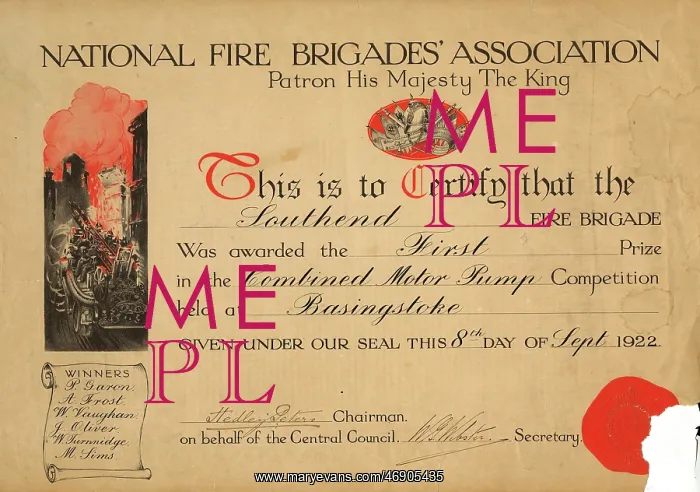 NATIONAL FIRE BRIGADES' ASSOCIATION
Patron His Majesty The King
ME
PL
This is to Certify that the
Southend FIRE BRIGADE
Was awarded the First Prize
in the Combined Motor Pump Competition
held at Basingstoke
GIVEN UNDER OUR SEAL THIS 8th DAY OF Sept 1922.
ME
PL
WINNERS
P. Garon.
A Frost.
W. Vaughan.
J. Oliver.
W. Turnnidge.
M. Sims.
Hedley Peters Chairman.
on behalf of the Central Council. Secretary.
www.maryevans.com/46905435